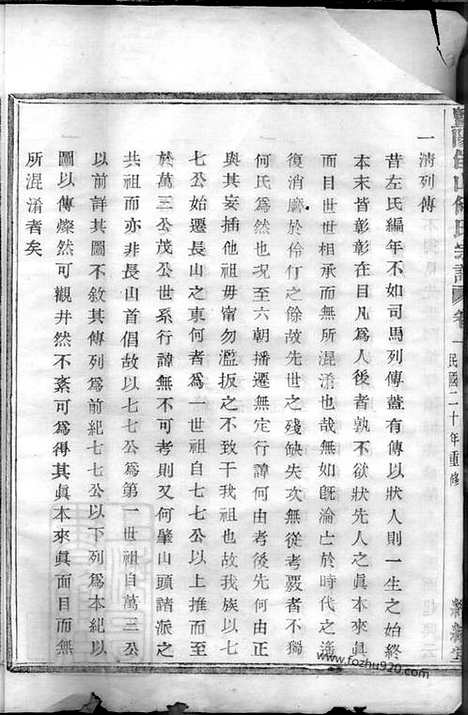 何氏宗譜 卷一 民國二十年重修
一清列傳
昔左氏編年不如司馬列傳蓋有傳以狀人則一生之始終
本末皆彰彰在目凡爲人後者孰不欲狀先人之眞本來眞
面目世世相承而無所混淆也哉無如旣淪亡於時代之遙
復消磨於伶仃之餘故先世之殘缺失次無從考覈者不獨
何氏爲然也況至六朝播遷無定行諱何由考後先何由正
與其妄插他祖毋甯勿濫扳之不致干我祖也故我族以七
七公始遷長山之東何者爲一世祖自七七公以上推而至
於萬三公茂公世系行諱無不可考則又何肇山頭諸派之
共祖而亦非長山首倡故以七七公爲第一世祖自萬三公
以前詳其圖不敘其傳列爲前紀七七公以下列爲本紀以
圖以傳燦然可觀井然不紊可爲得其眞本來眞面目而無
所混淆者矣
www.fozhu920.com